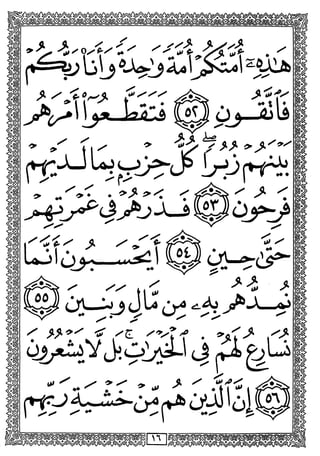 هَـٰذِهِۦٓ أُمَّتُكُمْ أُمَّةً وَٰحِدَةً وَأَنَا۠ رَبُّكُمْ
فَٱتَّقُونِ ٥٢ فَتَقَطَّعُوٓا۟ أَمْرَهُم
بَيْنَهُمْ زُبُرًا ۖ كُلُّ حِزْبٍۭ بِمَا لَدَيْهِمْ
فَرِحُونَ ٥٣ فَذَرْهُمْ فِى غَمْرَتِهِمْ
حَتَّىٰ حِينٍ ٥٤ أَيَحْسَبُونَ أَنَّمَا
نُمِدُّهُم بِهِۦ مِن مَّالٍ وَبَنِينَ ٥٥
نُسَارِعُ لَهُمْ فِى ٱلْخَيْرَٰتِ ۚ بَل لَّا يَشْعُرُونَ
٥٦ إِنَّ ٱلَّذِينَ هُم مِّنْ خَشْيَةِ رَبِّهِم
١٦